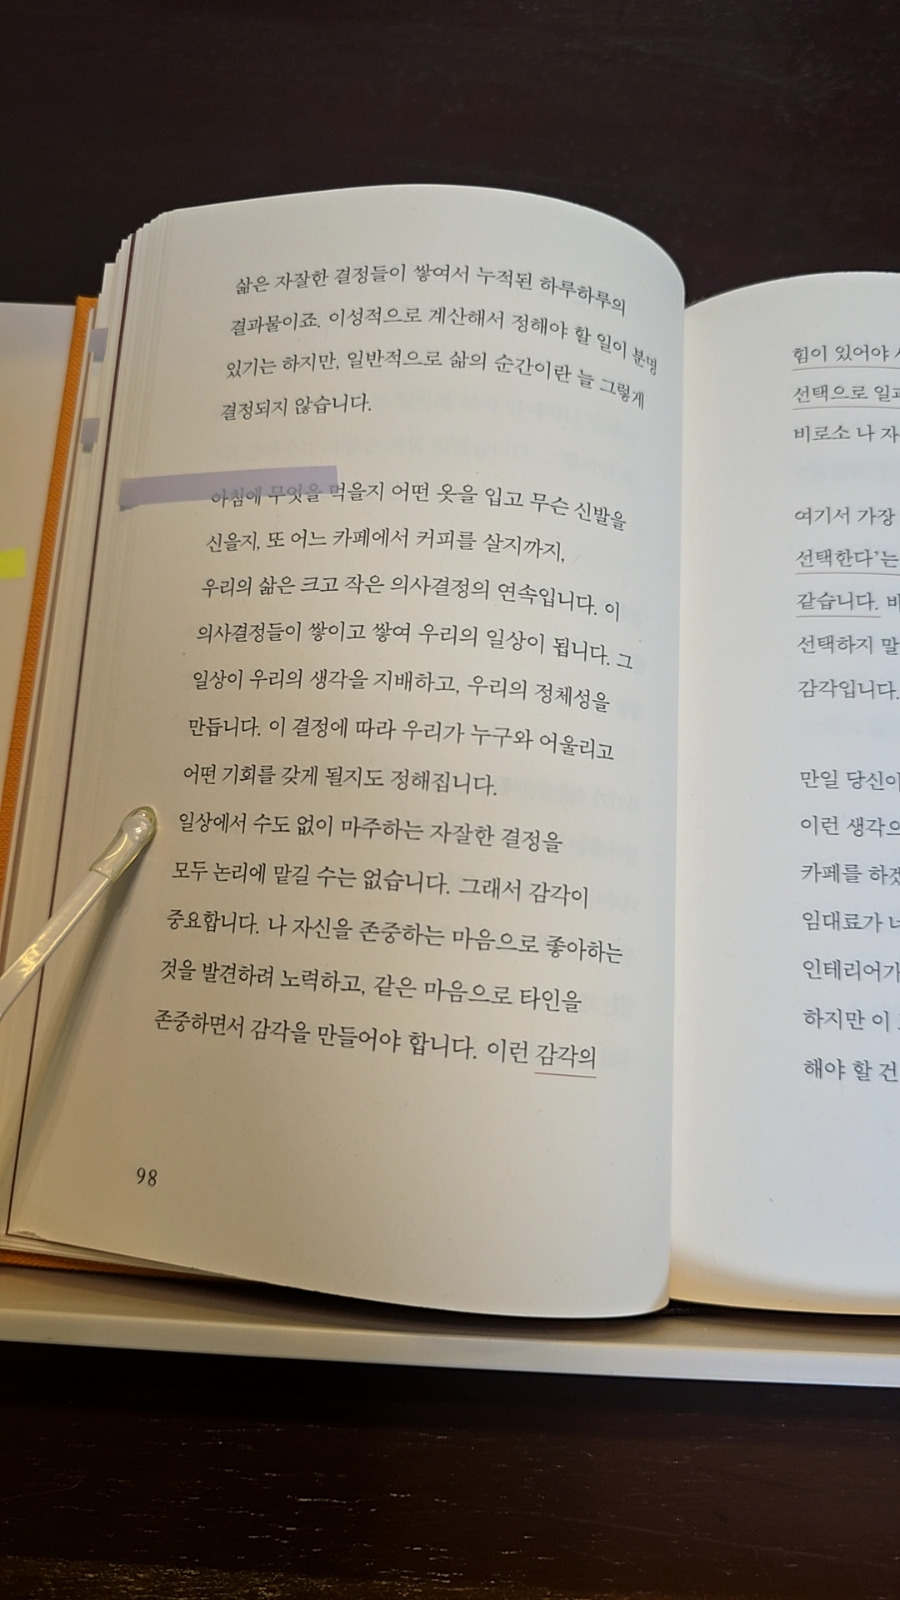 삶은 자잘한 결정들이 쌓여서 누적된 하루하루의
결과물이죠. 이성적으로 계산해서 정해야 할 일이 분명
있기는 하지만, 일반적으로 삶의 순간이란 늘 그렇게
결정되지 않습니다.
아침에 무엇을 먹을지 어떤 옷을 입고 무슨 신발을
신을지, 또 어느 카페에서 커피를 살지까지,
우리의 삶은 크고 작은 의사결정의 연속입니다. 이
의사결정들이 쌓이고 쌓여 우리의 일상이 됩니다. 그
일상이 우리의 생각을 지배하고, 우리의 정체성을
만듭니다. 이 결정에 따라 우리가 누구와 어울리고
어떤 기회를 갖게 될지도 정해집니다.
일상에서 수도 없이 마주하는 자잘한 결정을
모두 논리에 맡길 수는 없습니다. 그래서 감각이
중요합니다. 나 자신을 존중하는 마음으로 좋아하는
것을 발견하려 노력하고, 같은 마음으로 타인을
존중하면서 감각을 만들어야 합니다. 이런 감각의
98
힘이 있어야
선택으로
비로소 나
여기서 가장
선택한다'는
같습니다.
선택하지 말
감각입니다.
만일 당신이
이런
카페를
임대료가
인테리어가
하지만 이
해야 할 건